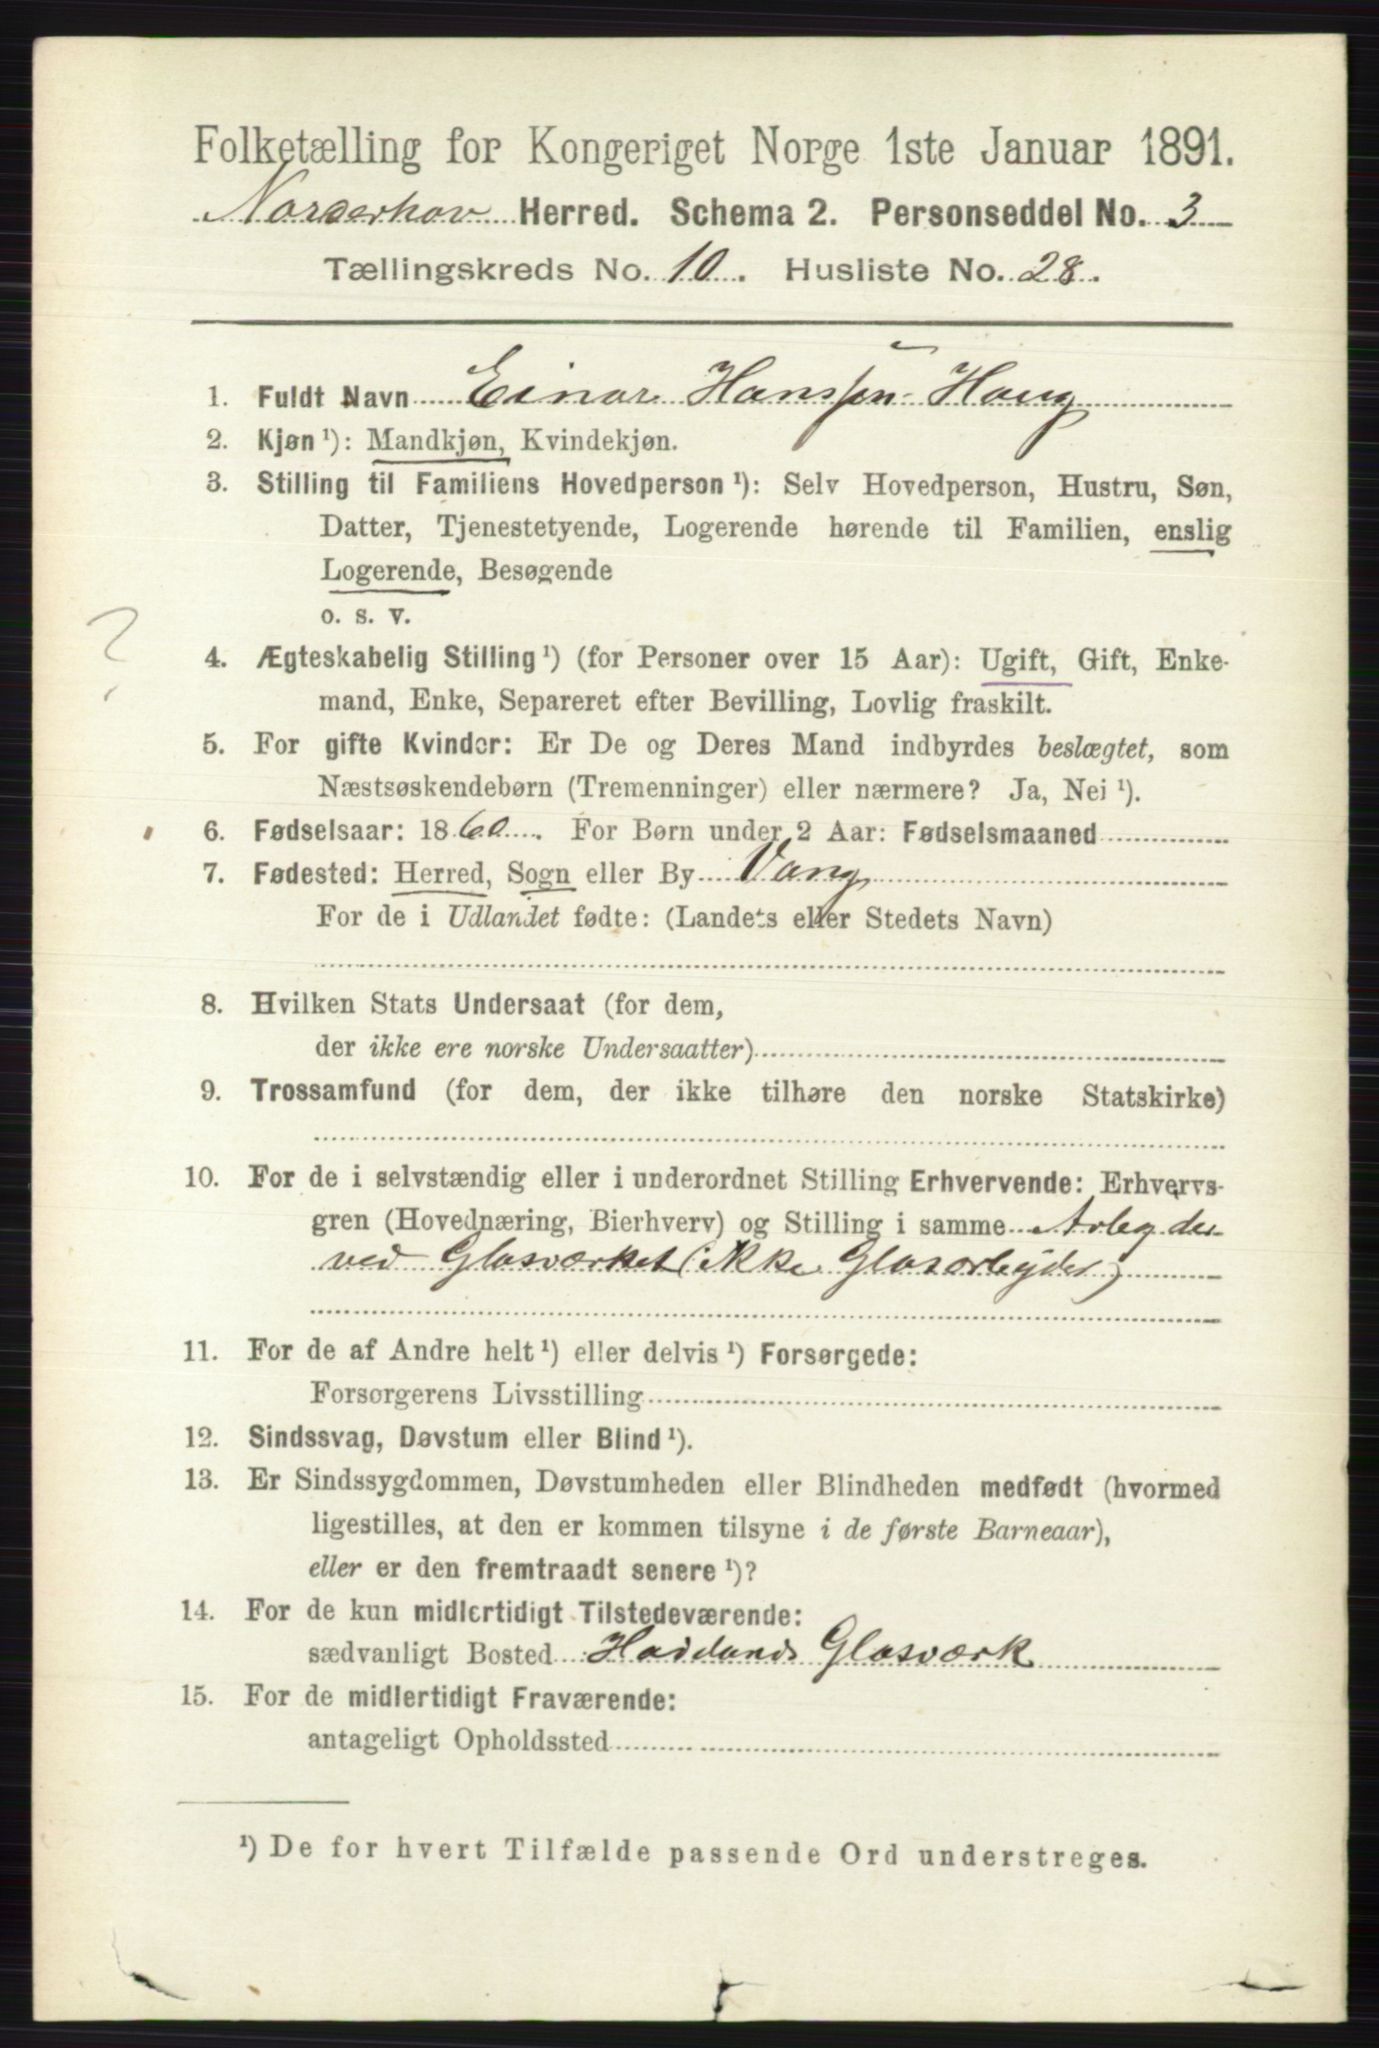 Folketælling for Kongeriget Norge 1ste Januar 1891.
Norderhov Herred. Schema 2. Personseddel No. 3
Tællingskreds No. 10. Husliste No. 28.
1. Fuldt Navn Einar Hanssen Haug
2. Kjøn ¹): Mandkjøn, Kvindekjøn.
3. Stilling til Familiens Hovedperson ¹): Selv Hovedperson, Hustru, Søn,
Datter, Tjenestetyende, Logerende hørende til Familien, enslig
Logerende, Besøgende
o. s. v.
?
4. Ægteskabelig Stilling ¹) (for Personer over 15 Aar): Ugift, Gift, Enke-
mand, Enke, Separeret efter Bevilling, Lovlig fraskilt.
5. For gifte Kvinder: Er De og Deres Mand indbyrdes beslægtet, som
Næstsøskendebørn (Tremenninger) eller nærmere? Ja, Nei ¹).
6. Fødselsaar: 1860. For Børn under 2 Aar: Fødselsmaaned
7. Fødested: Herred, Sogn eller By Vang
For de i Udlandet fødte: (Landets eller Stedets Navn)
8. Hvilken Stats Undersaat (for dem,
der ikke ere norske Undersaatter)
9. Trossamfund (for dem, der ikke tilhøre den norske Statskirke)
10. For de i selvstændig eller i underordnet Stilling Erhvervende: Erhvervs-
gren (Hovednæring, Bierhverv) og Stilling i samme Arbeyder
ved Glasværket (ikke Glasarbeyder)
11. For de af Andre helt ¹) eller delvis ¹) Forsørgede:
Forsørgerens Livsstilling
12. Sindssvag, Døvstum eller Blind ¹).
13. Er Sindssygdommen, Døvstumheden eller Blindheden medfødt (hvormed
ligestilles, at den er kommen tilsyne i de første Barneaar),
eller er den fremtraadt senere ¹)?
14. For de kun midlertidigt Tilstedeværende:
sædvanligt Bosted Hadelands Glasværk
15. For de midlertidigt Fraværende:
antageligt Opholdssted
¹) De for hvert Tilfælde passende Ord understreges.